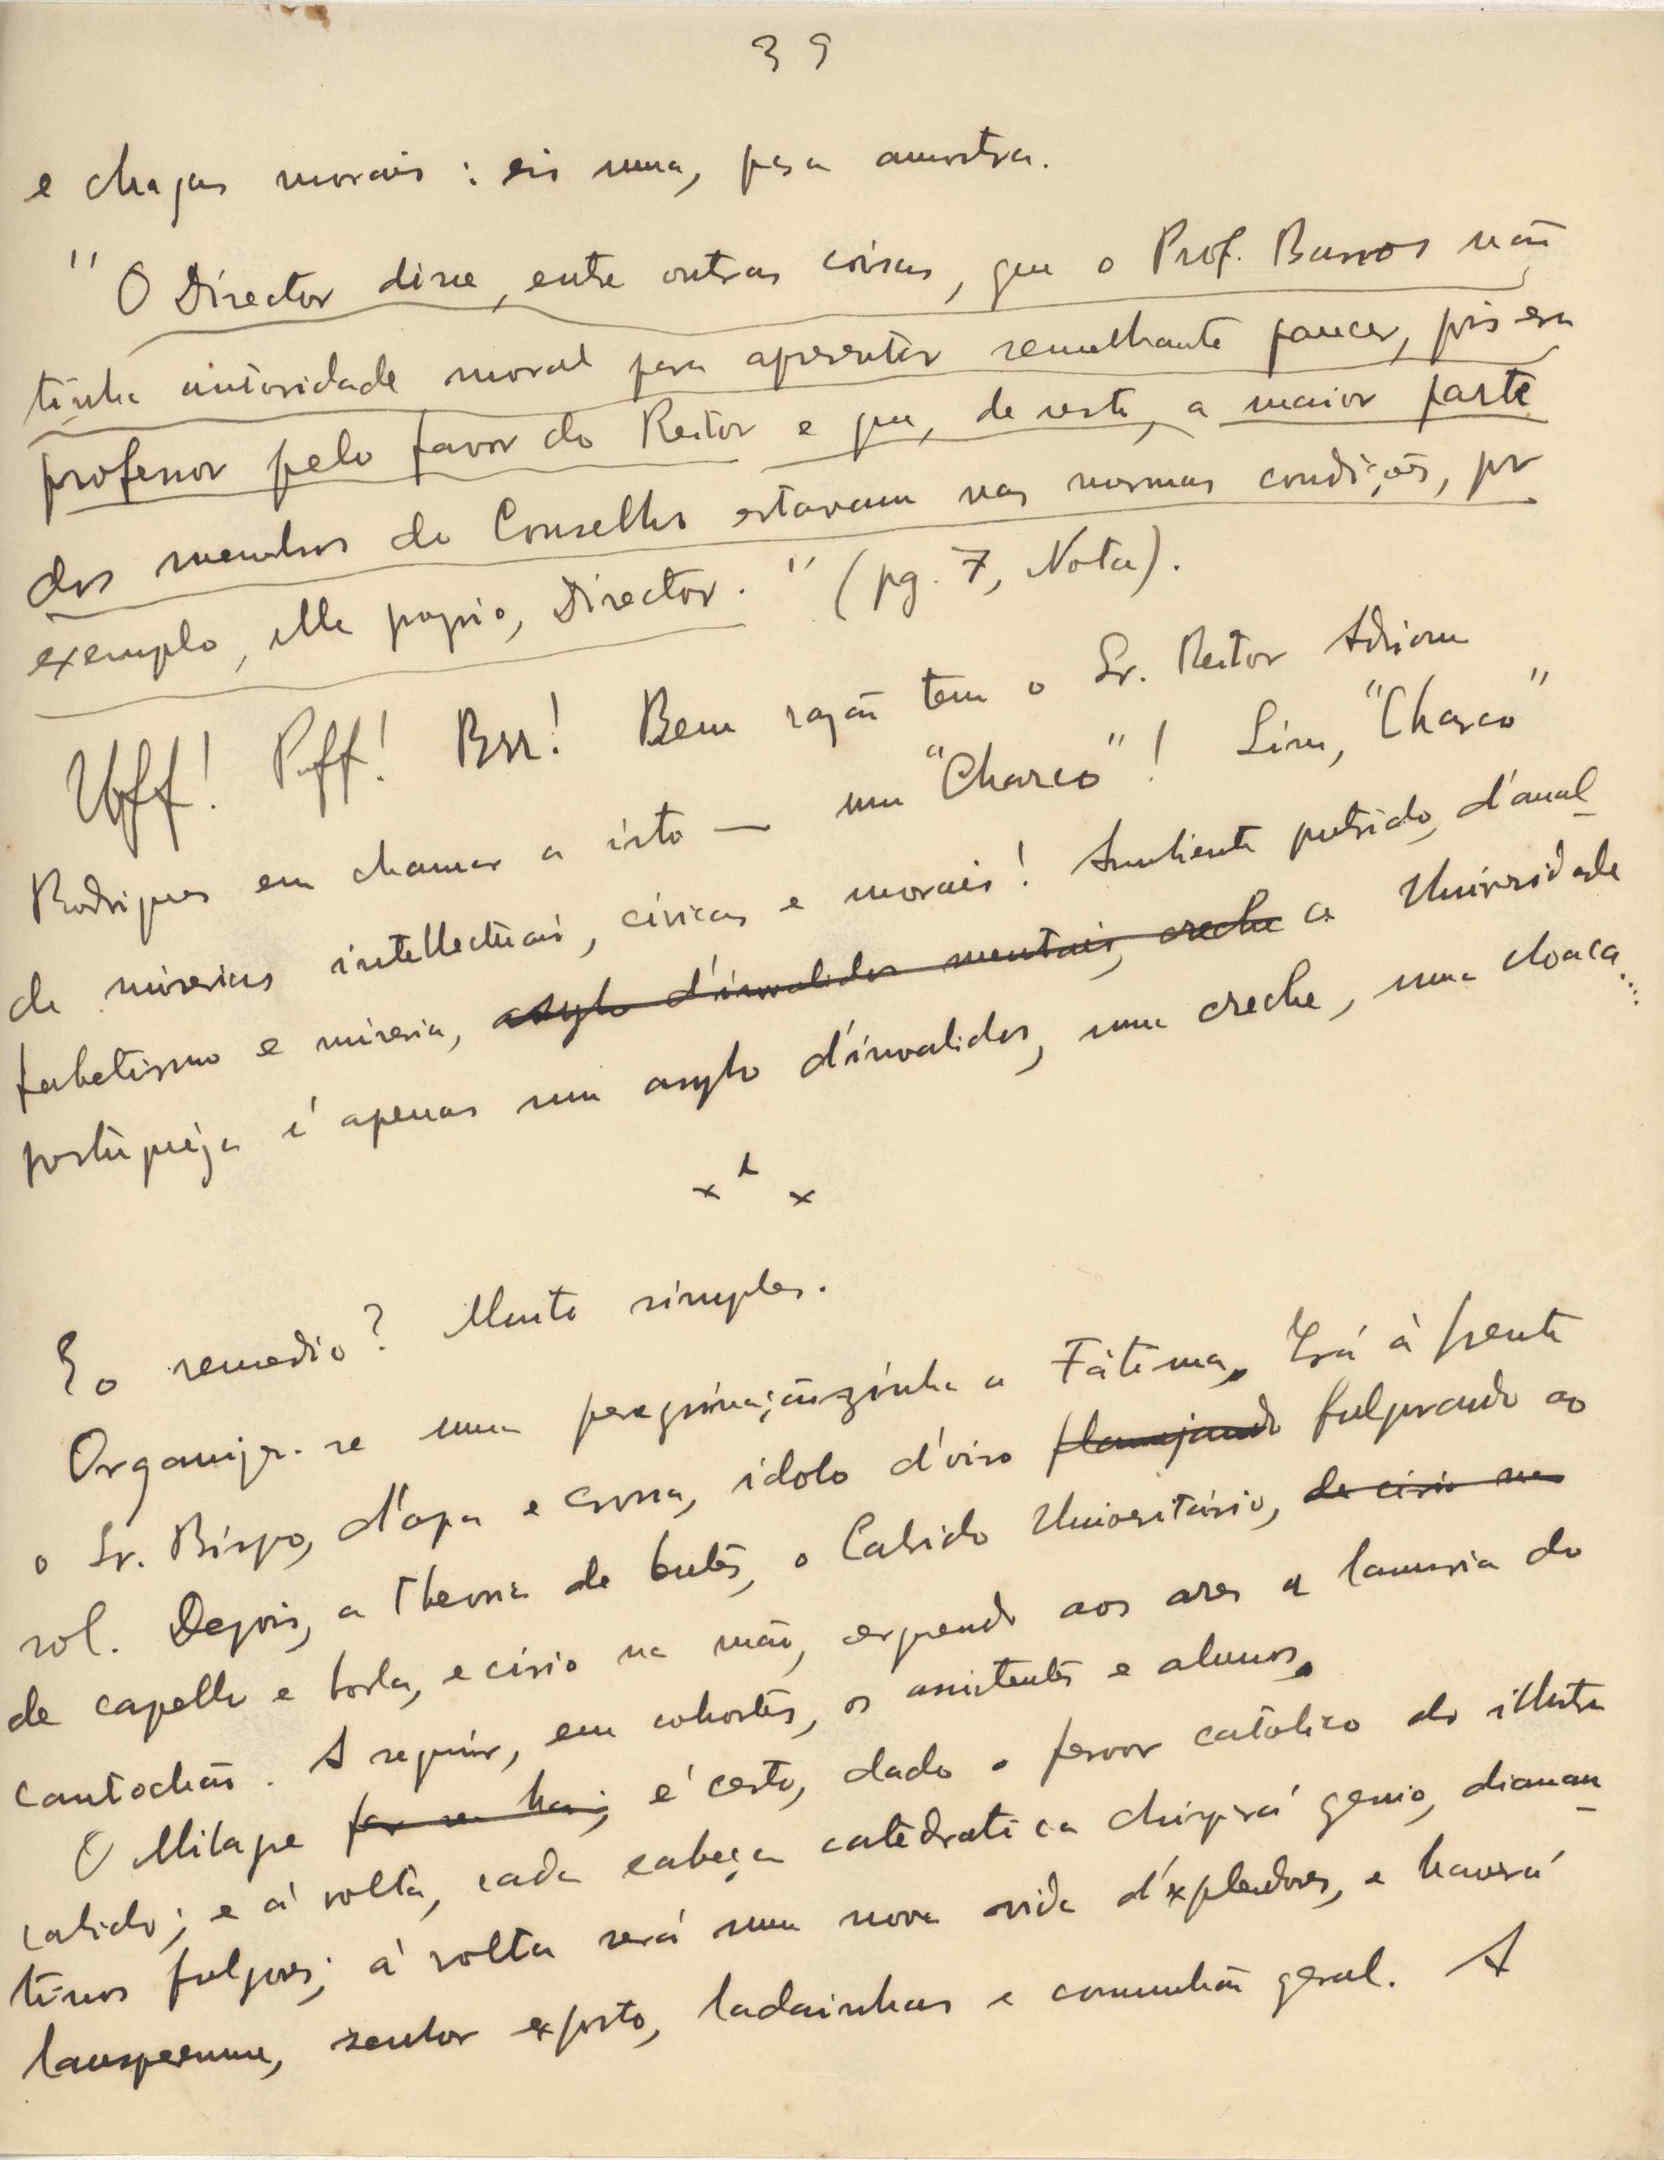 39
e chagas morais : eis uma, para amostra.
" O Director disse, entre outras coisas, que o Prof. Barros não
tinha autoridade moral para apresentar semelhante parecer, pois era
professor pelo favor do Reitor e que, de resto, a maior parte
dos membros do Conselho estavam nas mesmas condições, por
exemplo, elle proprio, Director. " (pg. 7, Nota).
Uff! Puff! Brr! Bem razão tem o Sr. Reitor Adriano
Rodrigues em chamar a isto — um "Charco"! Sim, "Charco"
de miserias intellectuais, civicas e morais! Ambiente putrido, d'anal-
fabetismo e miseria, asylo d'invalidos mentais, creche a Universidade
portuguêza é apenas um asylo d'invalidos, uma creche, uma cloaca....
x x x
E o remedio? Muito simples.
Organiza-se uma peregrinaçãozinha a Fátima. Irá à frente
o Sr. Bispo, d'opa e coroa, idolo d'oiro flamejando fulgurando ao
sol. Depois, a theoria de butes, o Cabido Universitário, de cirio na
de capello e borla, e cirio na mão, erguendo aos ares a lamuria do
cantochão. A seguir, em cohortes, os assistentes e alunos.
O Milagre far-se-ha; é certo, dado o fervor católico do illustre
cabido; e à volta, cada cabeça catedratica chispará genio, diaman-
tinos fulgores; à volta será uma nova vida d'explendores, e haverá
lausperenne, senhor exposto, ladainhas e comunhão geral. A